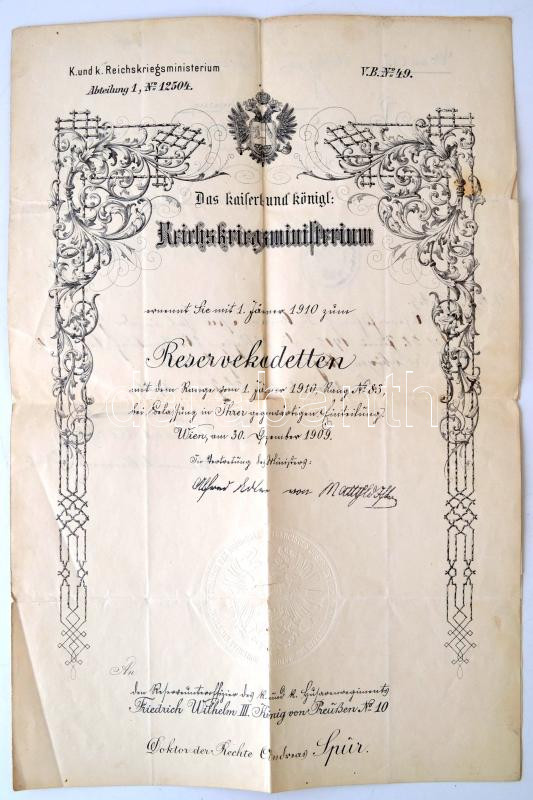 K. und k. Reichskriegsministerium
Abteilung 1, № 12504.
V.B. № 49.
Das kaiserl: und königl:
Reichskriegsministerium
ernennt Sie mit 1. Jänner 1910 zum
Reservekadetten
mit dem Range vom 1. Jänner 1910 Rang № 85
bei Belassung in Ihrer gegenwärtigen Einteilung
Wien, am 30. Dezember 1909.
In Vertretung des Ministers:
Alfred Edler von
darabanth
An
den Reserveunteroffizier des k. und k. Husarenregiments
Friedrich Wilhelm III. König von Preußen № 10
Doktor der Rechte Andreas Spür.